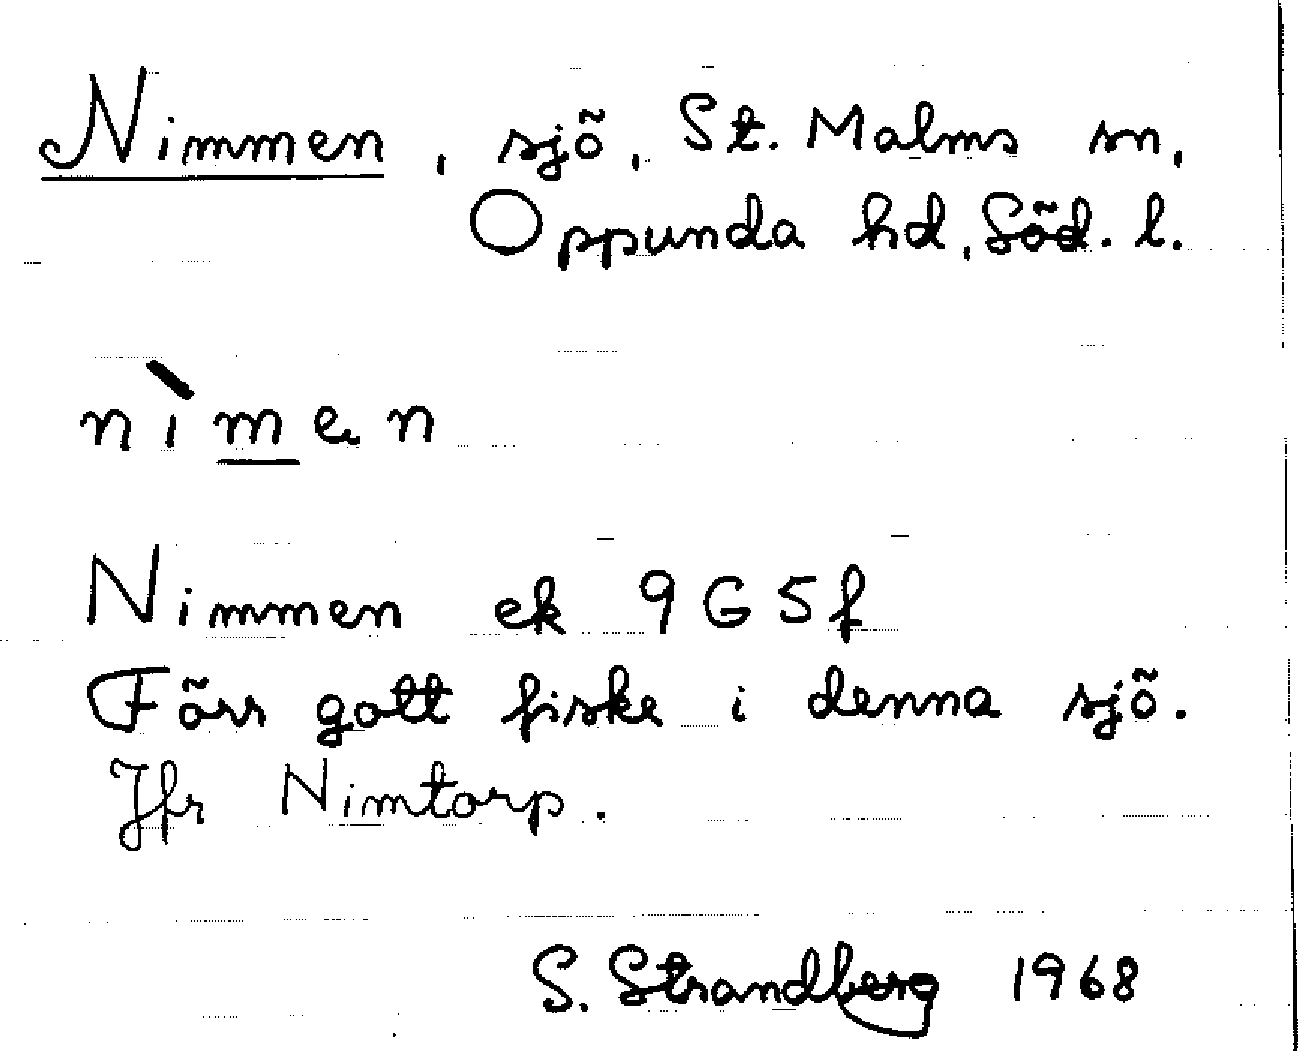 Nimmen, sjö, St. Malms sn,
Oppunda hd, Söd. l.
nìmen
Nimmen ek 9G5f
Förr gott fiske i denna sjö.
Jfr Nimtorp.
S. Strandberg 1968